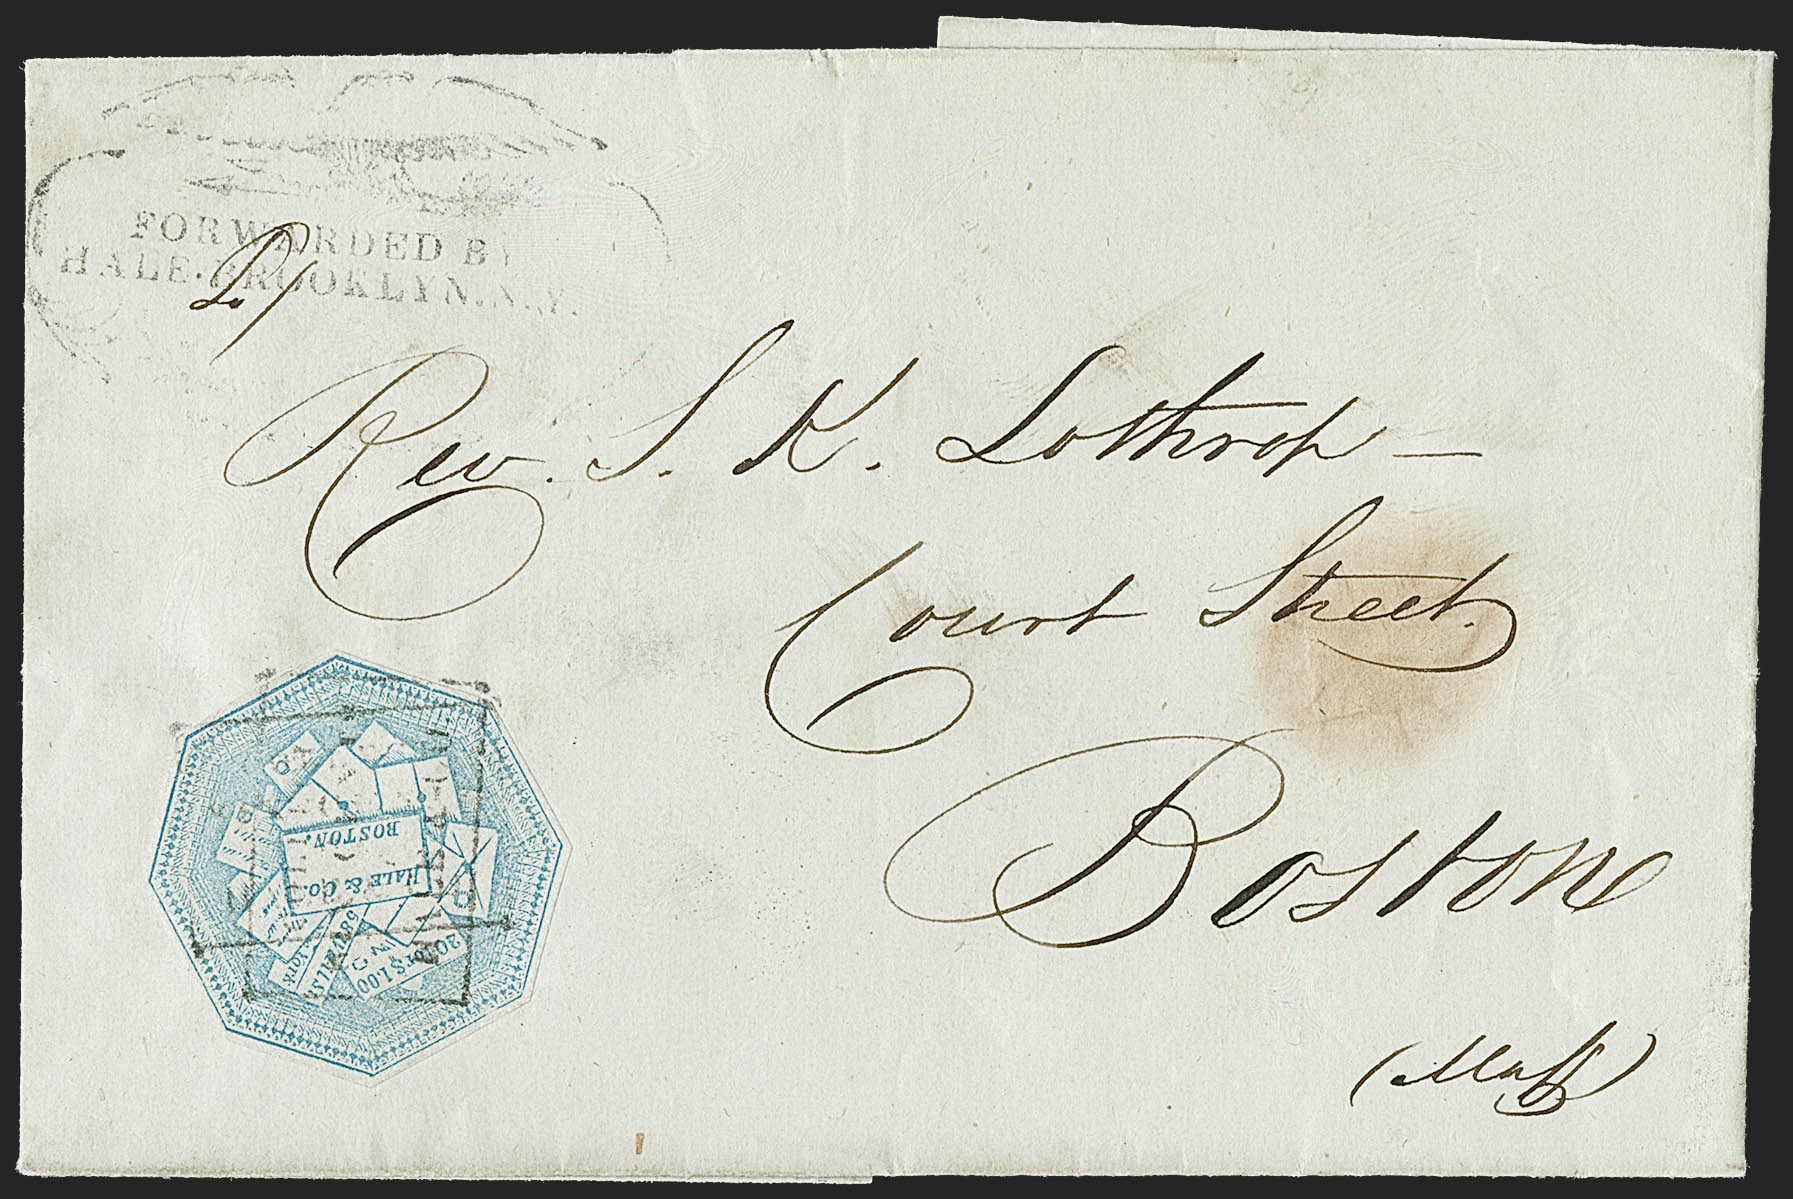 FORWARDED BY
HALE. BROOKLYN. N.Y.
Rev. S. K. Lothrop —
Court Street.
Boston
(Mass)
HALE & CO.
BOSTON.
20 FOR $1.00
York